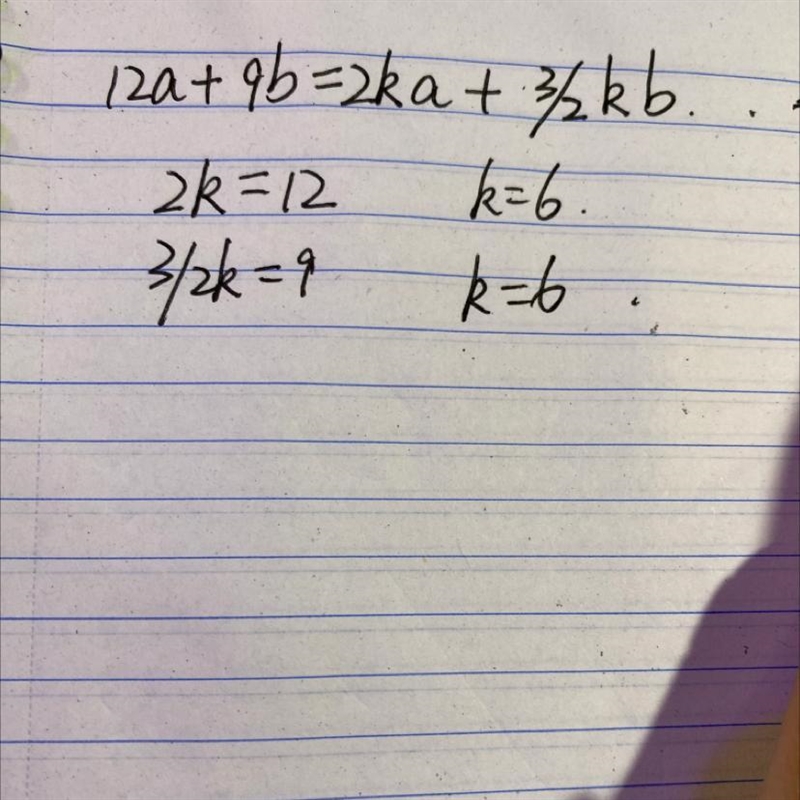 12a + 9b = 2ka + 3/2 kb. .
2k = 12 k = 6.
3/2k = 9 k = 6 .